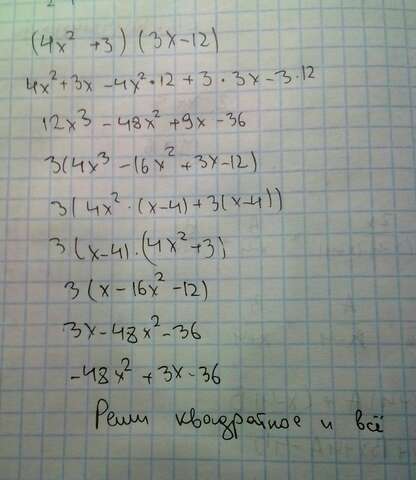 (4x² + 3) (3x - 12)
4x² + 3x - 4x² · 12 + 3 · 3x - 3 · 12
12x³ - 48x² + 9x - 36
3(4x³ - 16x² + 3x - 12)
3(4x² · (x - 4) + 3(x - 4))
3(x - 4) · (4x² + 3)
3(x - 16x² - 12)
3x - 48x² - 36
-48x² + 3x - 36
Реши квадратное и всё